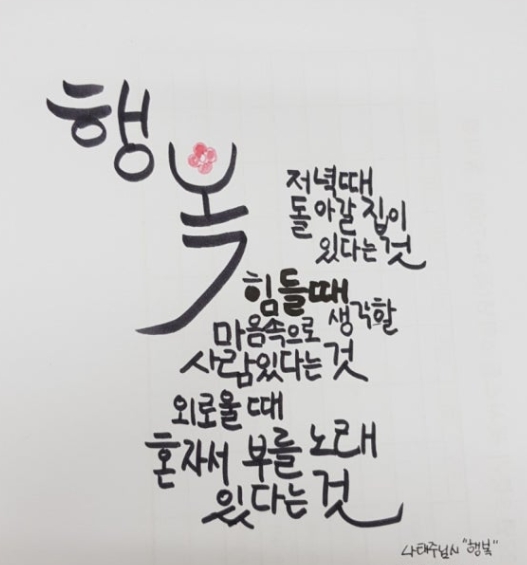 행복
저녁때
돌아갈 집이
있다는 것
힘들때
마음속으로 생각할
사람있다는 것
외로울때
혼자서 부를 노래
있다는 것
나태주님시 "행복"